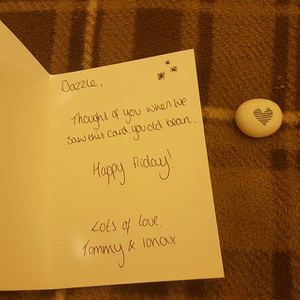 Dazzle,
Thought of you when we
saw this card, you old bean.
Happy Friday!
Lots of love,
Tommy &